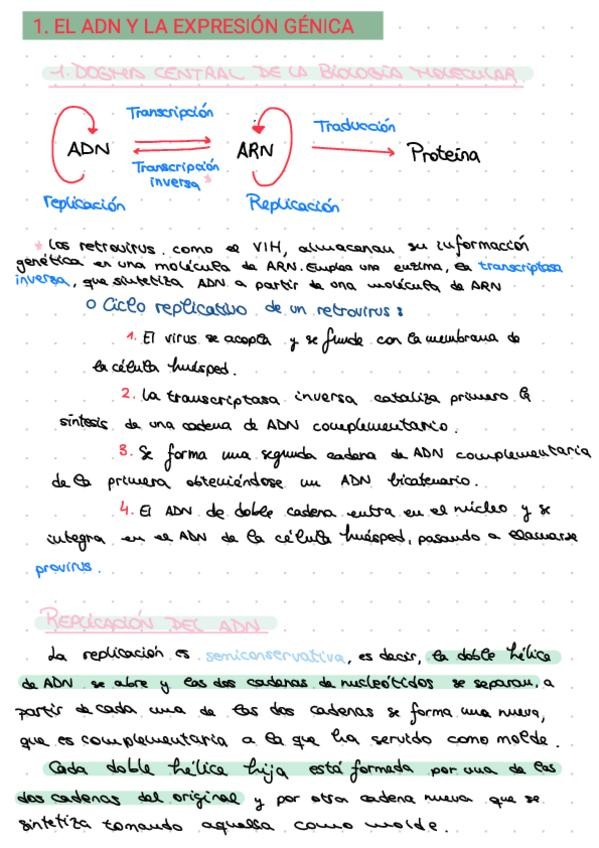 1. EL ADN Y LA EXPRESIÓN GÉNICA
1. DOGMA CENTRAL DE LA BIOLOGÍA MOLECULAR
Transcripción
Traducción
ADN
ARN
Proteína
Transcripción
inversa *
replicación
Replicación
* Los retrovirus como el VIH, almacenan su información
genética en una molécula de ARN. Emplea una enzima, la transcriptasa
inversa, que sintetiza ADN a partir de una molécula de ARN
o Ciclo replicativo de un retrovirus:
1. El virus se acopla y se funde con la membrana de
la célula huésped.
2. La transcriptasa inversa cataliza primero la
síntesis de una cadena de ADN complementario.
3. Se forma una segunda cadena de ADN complementaria
de la primera obteniéndose un ADN bicatenario.
4. El ADN de doble cadena entra en el núcleo y se
integra en el ADN de la célula huésped, pasando a llamarse
provirus.
REPLICACIÓN DEL ADN
La replicación es semiconservativa, es decir, la doble hélice
de ADN se abre y las dos cadenas de nucleótidos se separan, a
partir de cada una de las dos cadenas se forma una nueva,
que es complementaria a la que ha servido como molde.
Cada doble hélice hija está formada por una de las
dos cadenas del original y por otra cadena nueva que se
sintetiza tomando aquella como molde.